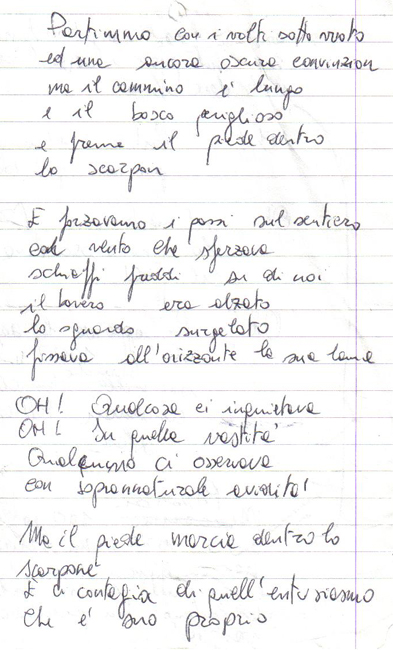 Partimmo con i volti sotto vuoto
ed una ancora oscura convinzion
ma il cammino è lungo
e il bosco periglioso
e preme il piede dentro
lo scarpon
E forzavamo i passi sul sentiero
col vento che sferzava
schiaffi freddi su di noi
il bavero era alzato
lo sguardo surgelato
fissava all'orizzonte la sua
OH! Qualcosa ci inquietava
OH! In quella vastità
Qualcuno ci osservava
con soprannaturale avidità
Ma il piede marcia dentro lo
scarpone
E ci contagia di quell'entusiasmo
che è suo proprio